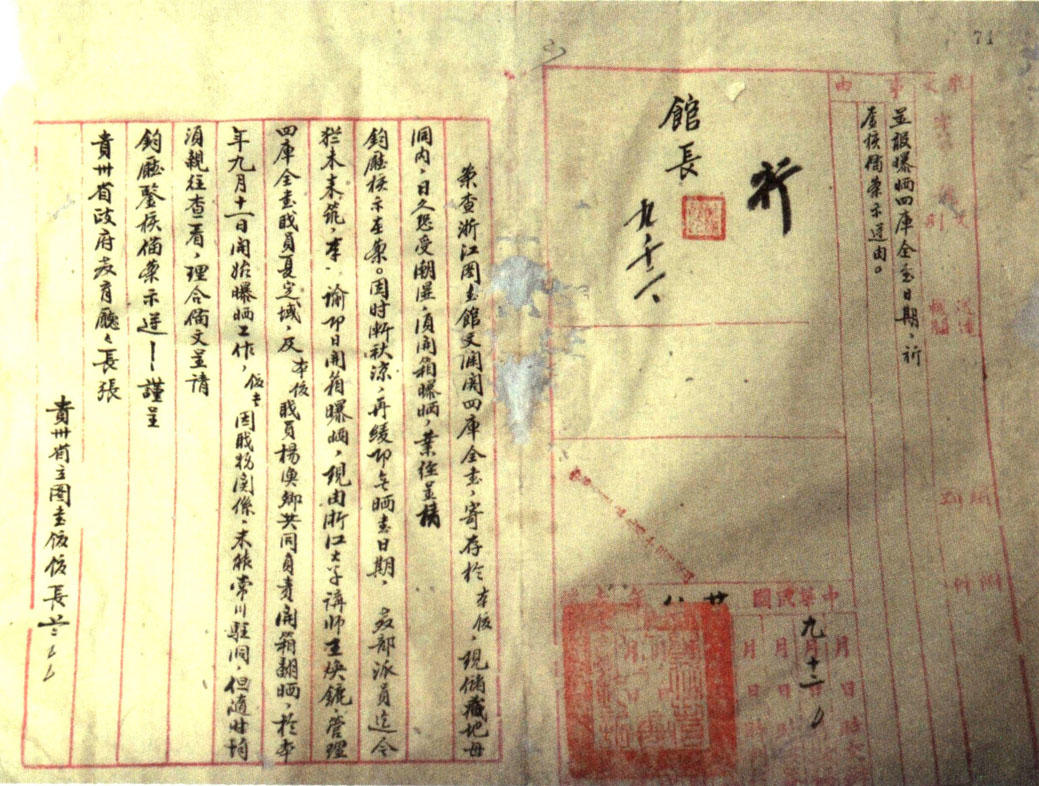 71
來文
事由
呈報曝晒四庫全書日期，祈
鑒核備案示遵由。
館長
九、十二、
中華民國
九月十二日
月日
月日
案查浙江圖書館文瀾閣四庫全書，寄存於本館，現儲藏地母
洞內，日久恐受潮濕，須開箱曝晒，業經呈
鈞廳核示在案。因時漸秋涼，再緩即無晒書日期，教部派員迄今
猶未來筑，奉 諭即日開箱曝晒，現由浙江大學講師王煥鑣，管理
四庫全書職員夏定域，及本館職員楊漁鄉共同負責開箱翻晒，於本
年九月十一日開始曝晒工作，館長因職務關係，未能常川駐洞，但適時均
須親往查看，理合備文呈請
鈞廳鑒核備案示遵！謹呈
貴州省政府教育廳廳長張
貴州省立圖書館館長